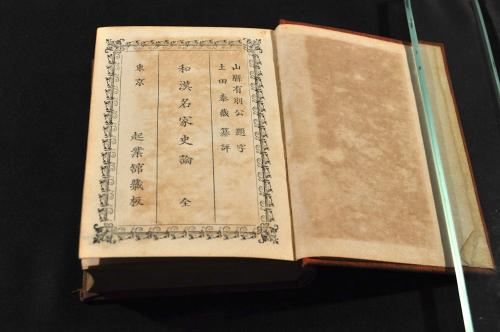 山縣有朋公 題字
土田泰蔵 纂評
和漢名家史論 全
東京 起業館藏板